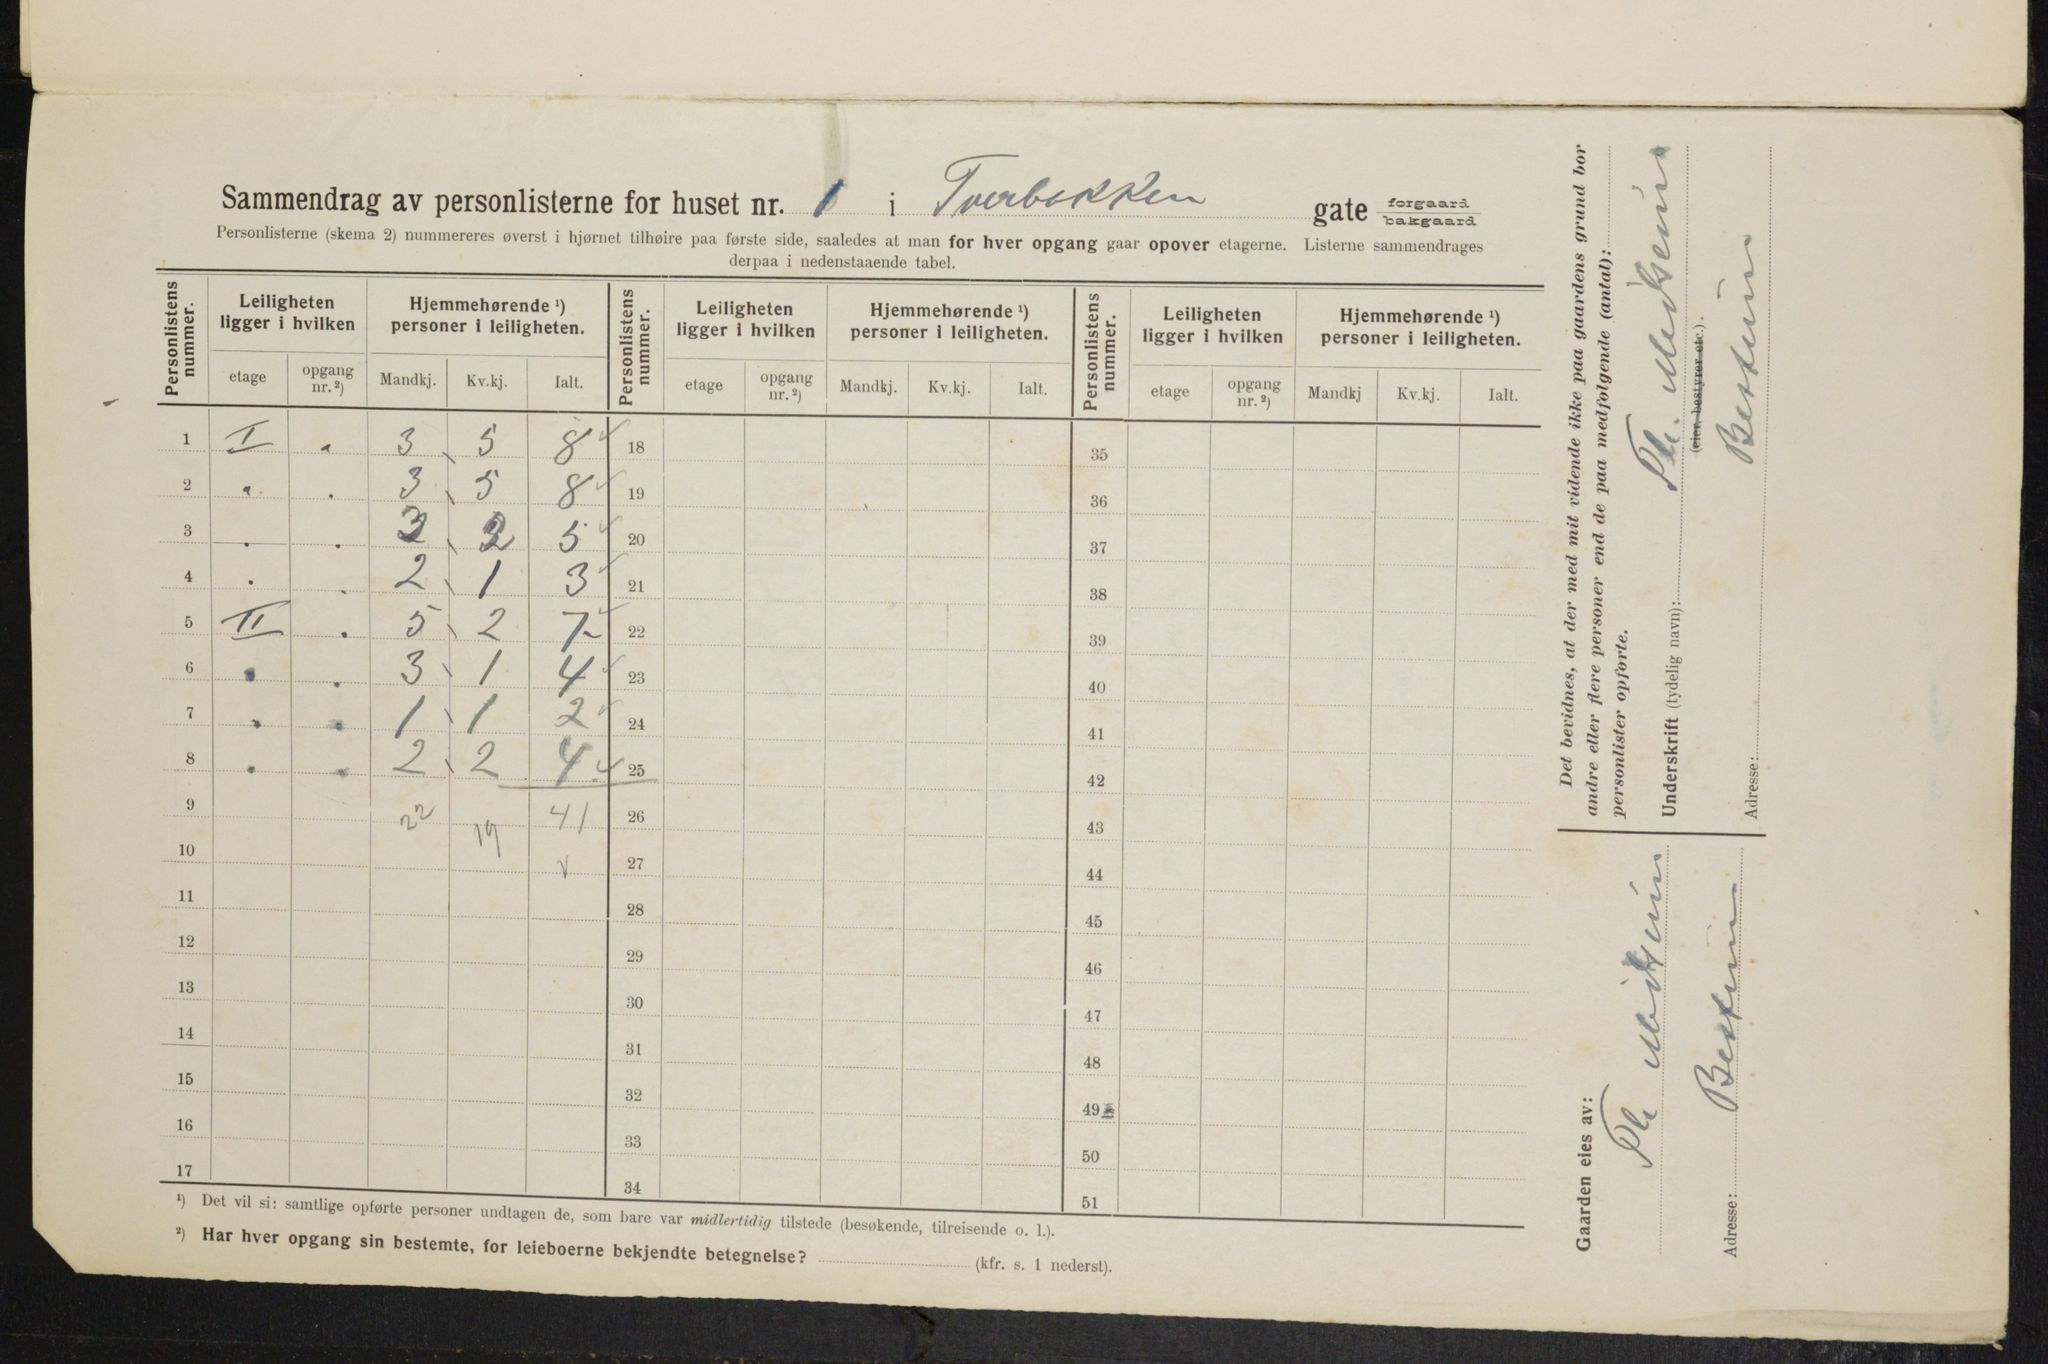 Sammendrag av personlisterne for huset nr. 1 i Tverbakken gate forgaard bakgaard
Personlisterne (skema 2) nummereres øverst i hjørnet tilhøire paa første side, saaledes at man for hver opgang gaar opover etagerne. Listerne sammendrages
derpaa i nedenstaaende tabel.
Personlistens nummer. Leiligheten ligger i hvilken Hjemmehørende ¹) personer i leiligheten. Personlistens nummer. Leiligheten ligger i hvilken Hjemmehørende ¹) personer i leiligheten. Personlistens nummer. Leiligheten ligger i hvilken Hjemmehørende ¹) personer i leiligheten.
etage opgang nr. ²) Mandkj. Kv.kj. Ialt. etage opgang nr. ²) Mandkj. Kv.kj. Ialt. etage opgang nr. ²) Mandkj Kv.kj. Ialt.
1 I " 3 5 8 ✓ 18 35
2 " " 3 5 8 ✓ 19 36
3 " " 3 2 5 ✓ 20 37
4 " " 2 1 3 ✓ 21 38
5 II " 5 2 7 ✓ 22 39
6 " " 3 1 4 ✓ 23 40
7 " " 1 1 2 ✓ 24 41
8 " " 2 2 4 ✓ 25 42
9 22 19 41 26 43
10 ✓ 27 44
11 28 45
12 29 46
13 30 47
14 31 48
15 32 49
16 33 50
17 34 51
¹) Det vil si: samtlige opførte personer undtagen de, som bare var midlertidig tilstede (besøkende, tilreisende o. l.).
²) Har hver opgang sin bestemte, for leieboerne bekjendte betegnelse? (kfr. s. 1 nederst).
Det bevidnes, at der med mit vidende ikke paa gaardens grund bor
andre eller flere personer end de paa medfolgende (antal):
personlister opførte.
Underskrift (tydelig navn):
(eier, bestyrer etc.).
Adresse: Bestum
Gaarden eies av:
Adresse: Bestum